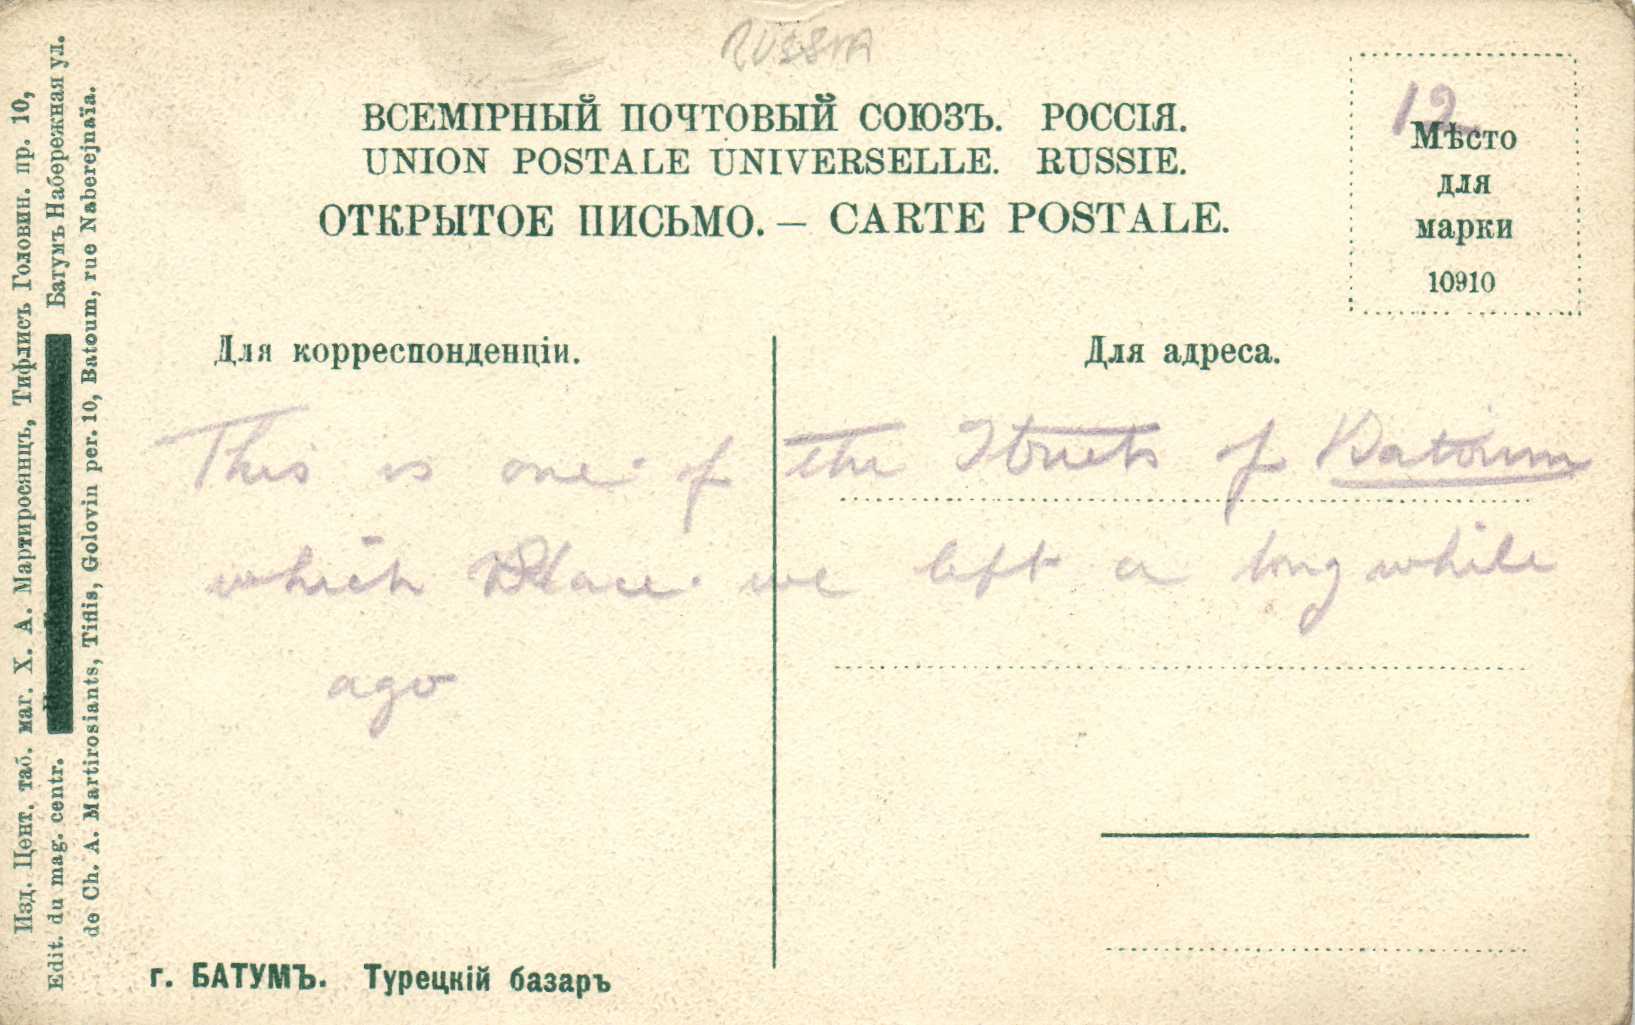 RUSSIA
ВСЕМІРНЫЙ ПОЧТОВЫЙ СОЮЗЪ. РОССІЯ.
UNION POSTALE UNIVERSELLE. RUSSIE.
ОТКРЫТОЕ ПИСЬМО. — CARTE POSTALE.
12
Мѣсто
для
марки
10910
Для корреспонденціи.
Для адреса.
This is one of the Streets of Batoum
which Place we left a long while
ago
г. БАТУМЪ. Турецкій базаръ
Изд. Цент. таб. маг. Х. А. Мартиросянцъ, Тифлисъ Головин. пр. 10,
Edit. du mag. centr. Батумъ Набережная ул.
de Ch. A. Martirosiants, Tiflis, Golovin per. 10, Batoum, rue Naberejnaïa.